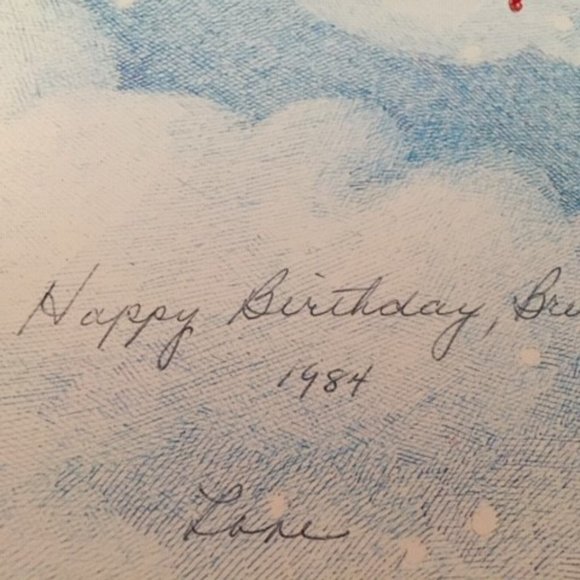 Happy Birthday, Bri
1984
Love